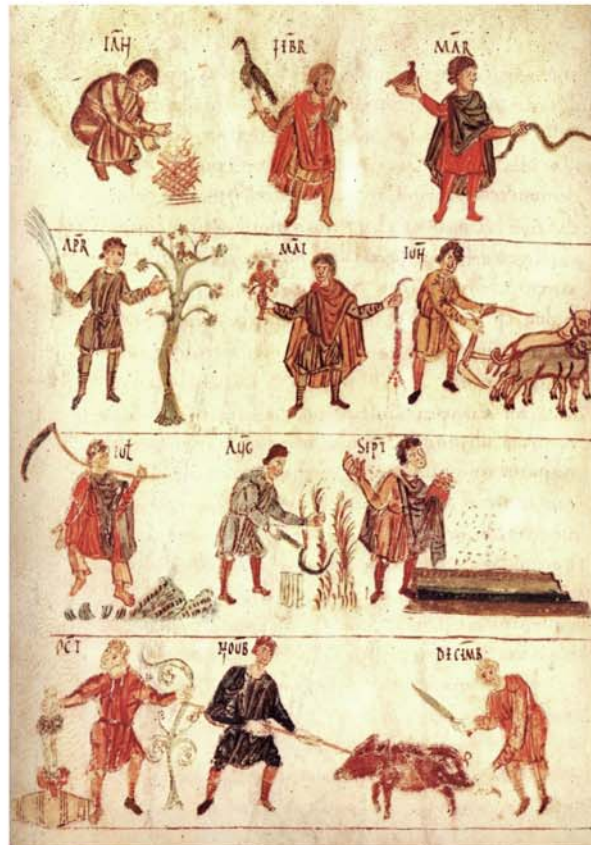 IAN̄ FEB̄R MĀR
APR MĀI IUN̄
IUL AUḠ SEPT
OCT NOUB DECEMB